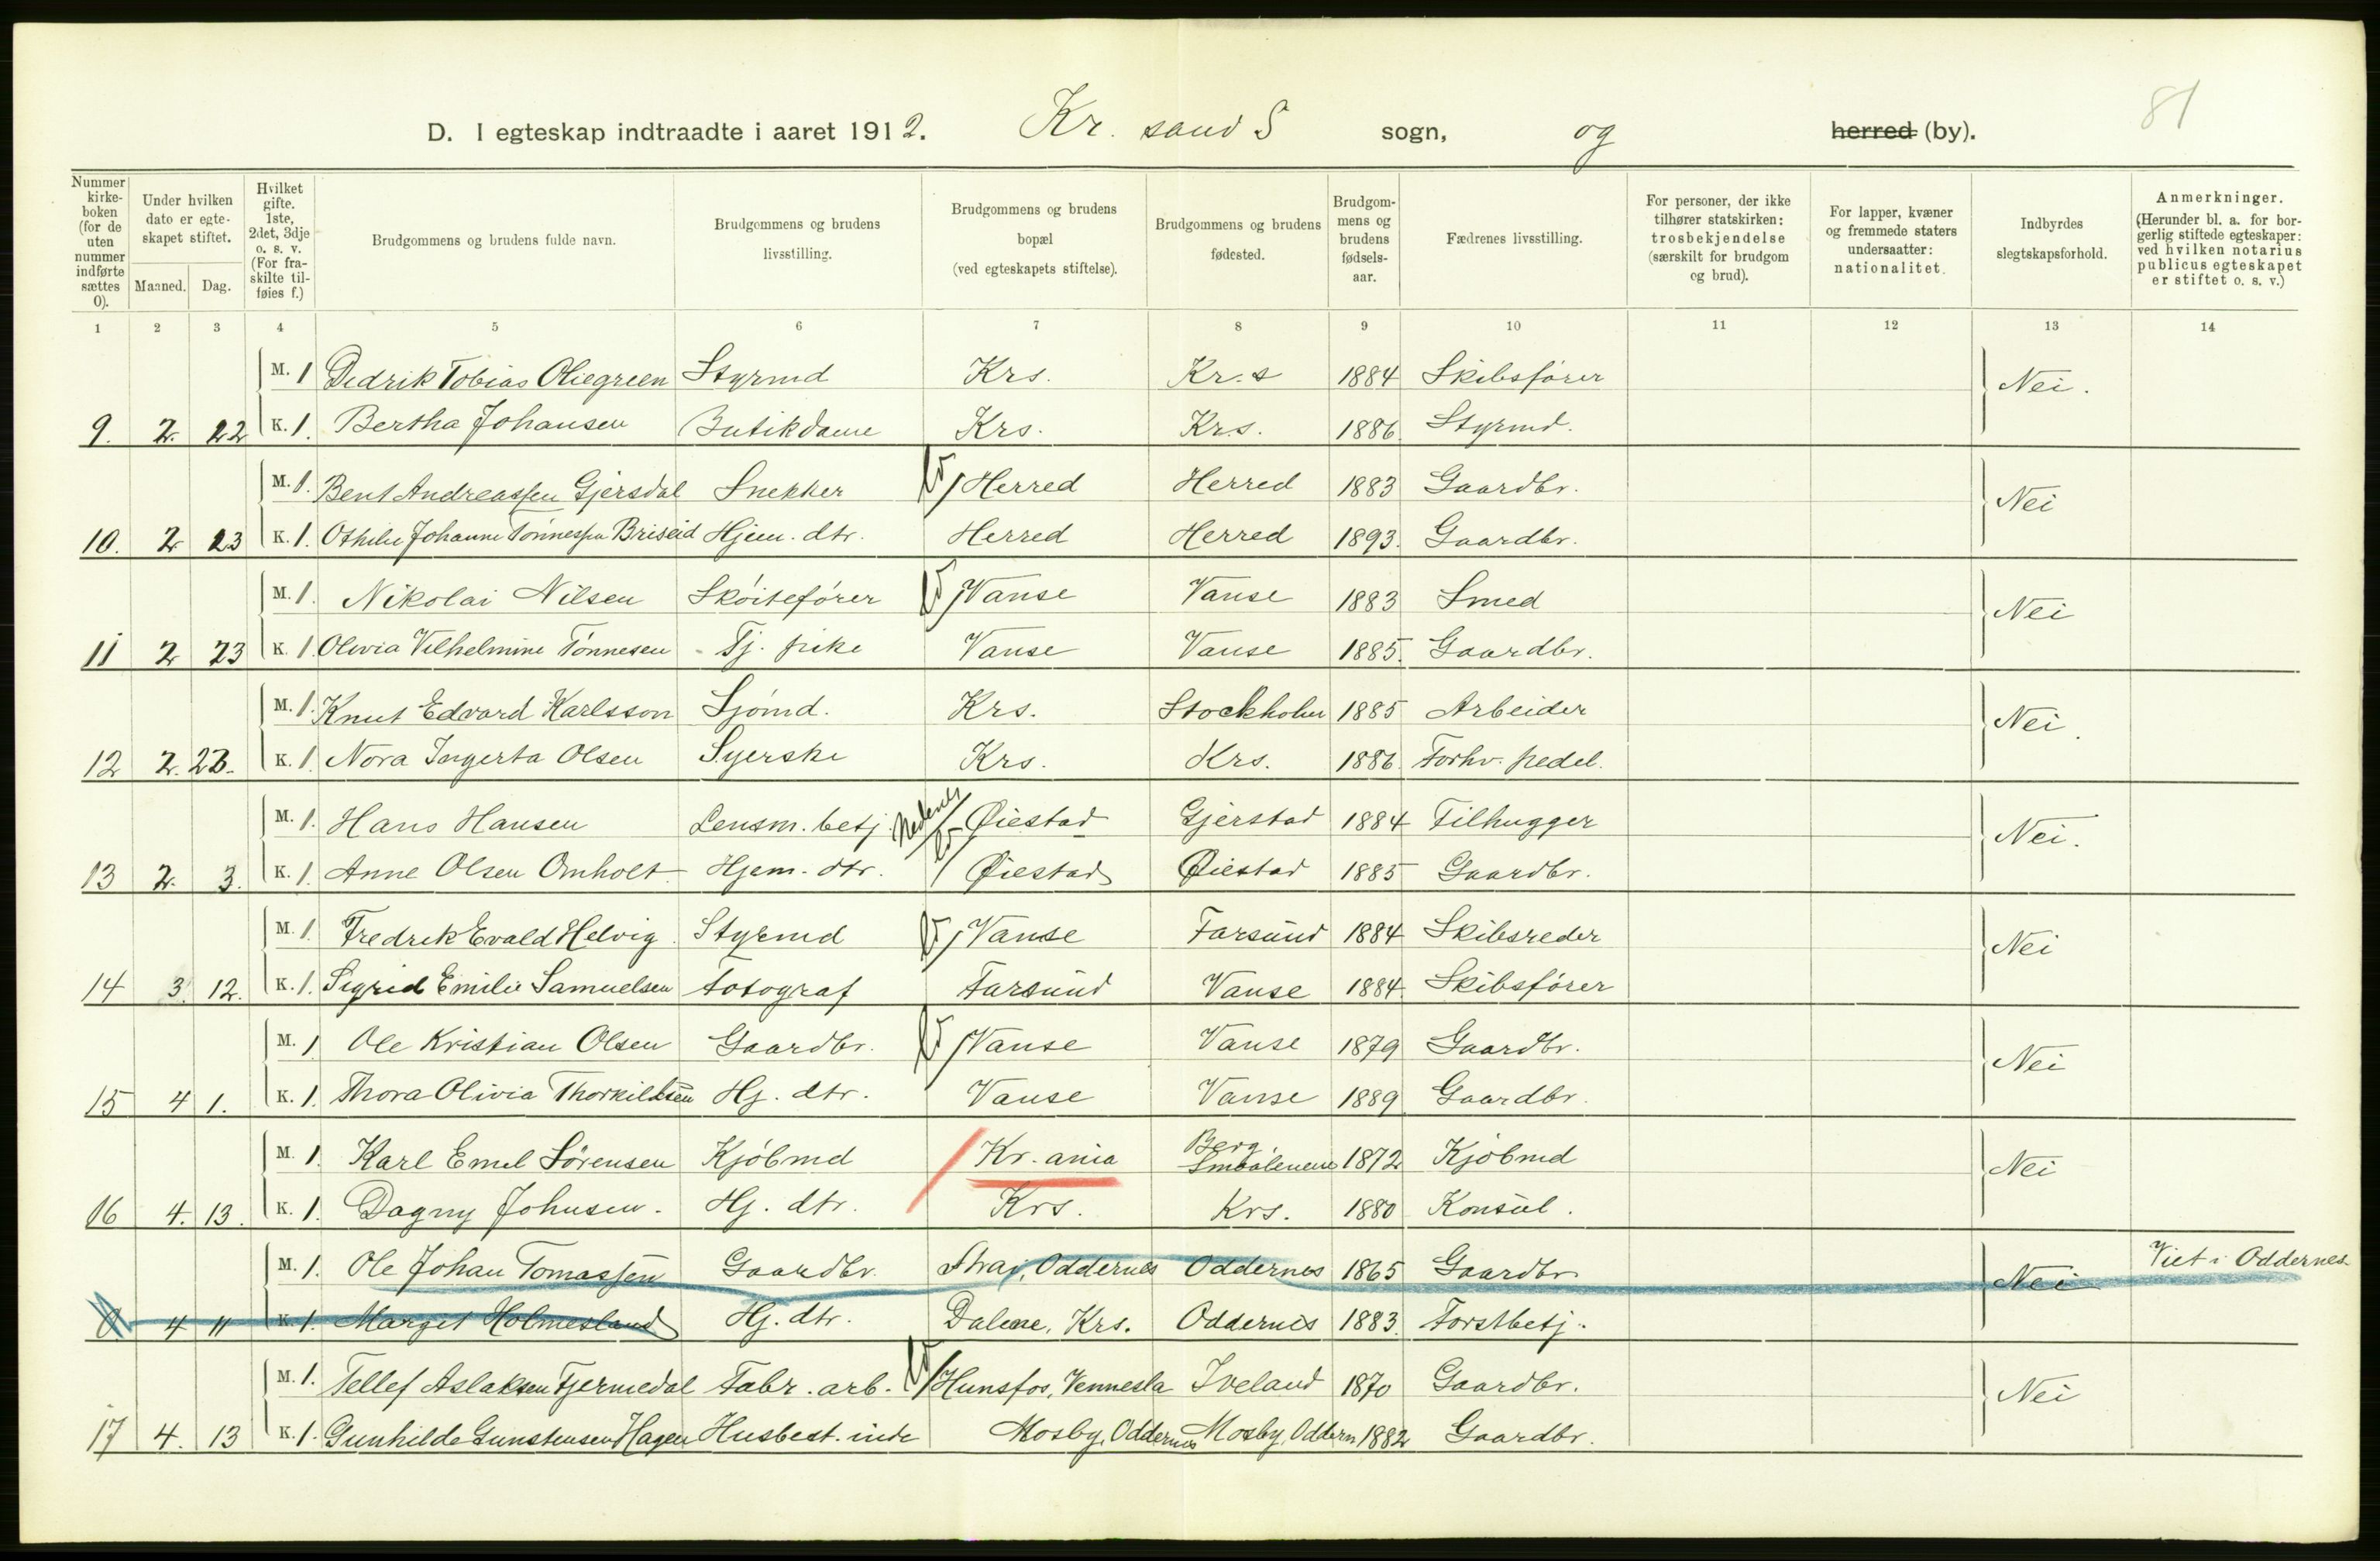 81
D. I egteskap indtraadte i aaret 1912. Kr. sand S sogn, og herred (by).
Nummer kirke-boken (for de uten nummer indførte sættes 0).
Under hvilken dato er egte-skapet stiftet.
Maaned. Dag.
Hvilket gifte. 1ste, 2det, 3dje o. s. v. (For fra-skilte til-føies f.)
Brudgommens og brudens fulde navn.
Brudgommens og brudens livsstilling.
Brudgommens og brudens bopæl (ved egteskapets stiftelse).
Brudgommens og brudens fødested.
Brudgom-mens og brudens fødsels-aar.
Fædrenes livsstilling.
For personer, der ikke tilhører statskirken: trosbekjendelse (særskilt for brudgom og brud).
For lapper, kvæner og fremmede staters undersaatter: nationalitet.
Indbyrdes slegtskapsforhold.
Anmerkninger. (Herunder bl. a. for bor-gerlig stiftede egteskaper: ved hvilken notarius publicus egteskapet er stiftet o. s. v.)
1 2 3 4 5 6 7 8 9 10 11 12 13 14
M. 1 Dedrik Tobias Oliegreen Styrmd Krs. Kr.s 1884 Skibsfører Nei.
9. 2. 22 K. 1. Bertha Johansen Butikdame Krs. Krs. 1886. Styrmd.
M. 1. Bent Andreassen Gjersdal Snekker Herred Herred 1883 Gaardbr. Nei
10. 2 23 K. 1. Othilie Johanne Tønnessen Briseid Hjem. dtr. Herred Herred 1893. Gaardbr.
M. 1. Nikolai Nilsen Skøitefører Vanse Vanse 1883 Smed Nei
11 2 23 K. 1. Olivia Vilhelmine Tønnesen Tj. pike Vanse Vanse 1885. Gaardbr.
M. 1. Knut Edvard Karlsson Sjømd. Krs. Stockholm 1885 Arbeider Nei.
12 2. 23. K. 1. Nora Ingerta Olsen Syerske Krs. Krs. 1886. Forhv. pedel.
M. 1. Hans Hansen Lensm. betj. Nedenes Øiestad Gjerstad 1884 Tilhugger Nei.
13 2. 3. K. 1. Anne Olsen Omholt Hjem. dtr. Øiestad Øiestad 1885 Gaardbr.
M. 1. Fredrik Evald Helvig Styrmd Vanse Farsund 1884 Skibsreder Nei
14 3. 12. K. 1. Sigrid Emilie Samuelsen Fotograf Farsund Vanse 1884. Skibsfører
M. 1 Ole Kristian Olsen Gaardbr. Vanse Vanse 1879 Gaardbr. Nei
15 4 1. K. 1. Thora Olivia Thorkildsen Hj. dtr. Vanse Vanse 1889. Gaardbr.
M. 1. Karl Emil Sørensen Kjøbmd Kr.ania Berg. Smaalenene 1872 Kjøbmd Nei
16 4. 13. K. 1. Dagny Johnsen. Hj. dtr. Krs. Krs. 1880 Konsul.
M. 1. Ole Johan Tomassen Gaardbr. Strai, Oddernes Oddernes 1865 Gaardbr. Nei Viet i Oddernes
0 4 11 K. 1. Margit Holmesland Hj. dtr. Dalene, Krs. Oddernes 1883. Forstbetj.
M. 1. Tellef Aslaksen Tjermedal Fabr. arb. Hunsfos, Vennesla Iveland 1870 Gaardbr. Nei
17 4. 13 K. 1. Gunhilde Gunstensen Hagen Husbest.inde Mosby, Oddernes Mosby, Oddern 1882 Gaardbr.